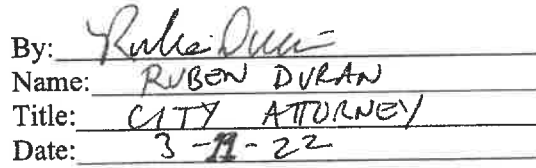 By:
Name: RUBEN DURAN
Title: CITY ATTORNEY
Date: 3-11-22